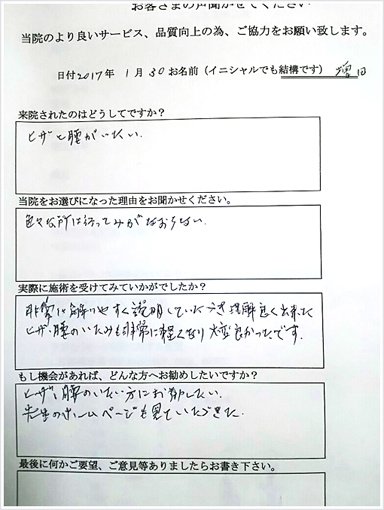 お客さまの声聞かせてください
当院のより良いサービス、品質向上の為、ご協力をお願い致します。
日付2017年 1月30 お名前(イニシャルでも結構です) 増田
来院されたのはどうしてですか?
ヒザと腰がいたい.
当院をお選びになった理由をお聞かせください。
色々な所は行ってみがなおらない.
実際に施術を受けてみていかがでしたか?
非常に解りやすく説明していただき理解良く出来た
ヒザ、腰のいたみも非常に軽くなり大変良かったです.
もし機会があれば、どんな方へお勧めしたいですか?
ヒザ、腰のいたい方にお勧したい.
先生のホームページも見ていただきた.
最後に何かご要望、ご意見等ありましたらお書き下さい。